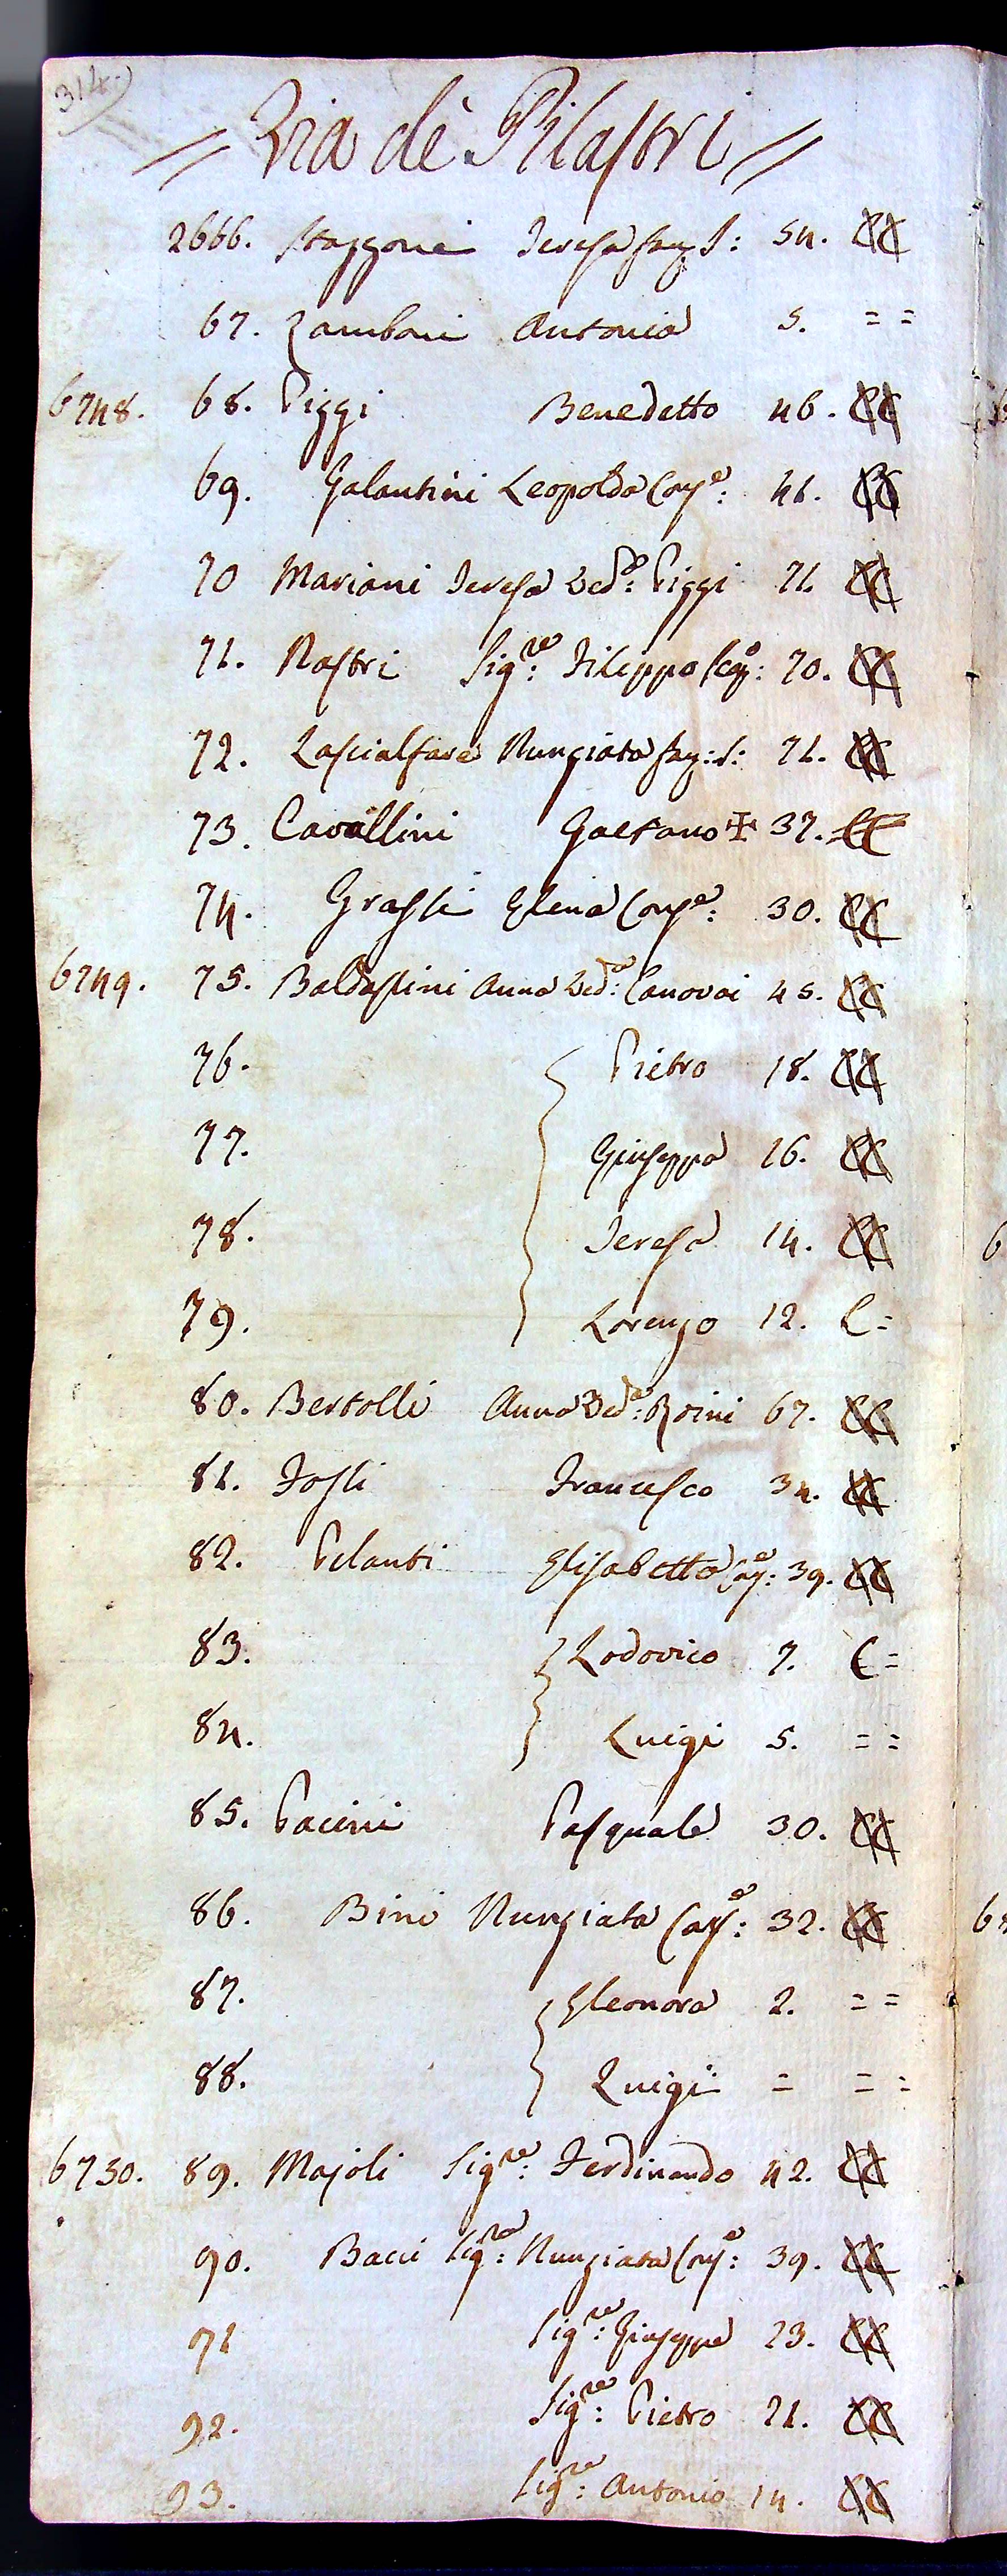 314.)
= Via dè Pilastri =
2666. Staggoni Teresa Faz S: 54. CC
67. Zamboni Antonia 5. = =
6748. 68. Piggi Benedetto 46. CC
69. Galantini Leopolda Conj.e: 41. CC
70 Mariani Teresa Ved.a: Piggi 71. CC
71. Nastri Sig.re: Filippo Scap.o: 70. CC
72. Lascialfare Nunziata Faz: S: 71. CC
73. Cavallini Gaetano ✠ 37. CC
74. Grassi Elena Conj.e: 30. CC
6749. 75. Baldassini Anna Ved.a: Canovai 45. CC
76. Pietro 18. CC
77. Giuseppa 16. CC
78. Teresa 14. CC
79. Lorenzo 12. C=
80. Bertolli Anna Ved.a: Roini 67. CC
81. Fossi Francesco 34. CC
82. Pelanti Elisabetta Conj.e: 39. CC
83. Lodovico 7. C=
84. Luigi 5. = =
85. Pacini Pasquale 30. CC
86. Bini Nunziata Conj.e: 32. CC
87. Eleonora 2. = =
88. Luigi = = =
6730. 89. Majoli Sig.re: Ferdinando 42. CC
90. Bacci Sig.ra: Nunziata Conj.e: 39. CC
91 Sig.re: Giuseppe 23. CC
92. Sig.re: Pietro 21. CC
93. Sig.re: Antonio 14. CC